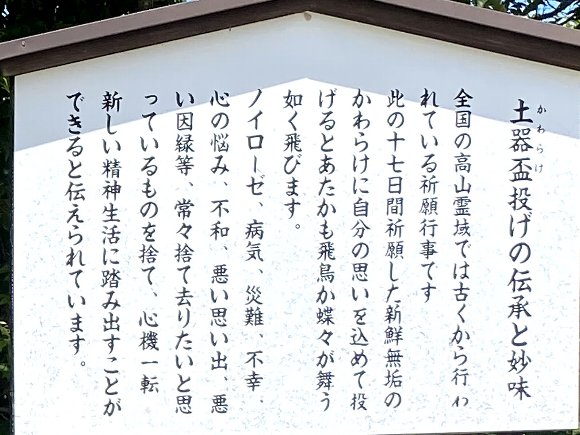 土器盃投げの伝承と妙味
かわらけ
全国の高山霊域では古くから行わ
れている祈願行事です
此の十七日間祈願した新鮮無垢の
かわらけに自分の思いを込めて投
げるとあたかも飛鳥か蝶々が舞う
如く飛びます。
ノイローゼ、病気、災難、不幸、
心の悩み、不和、悪い思い出、悪
い因縁等、常々捨て去りたいと思
っているものを捨て、心機一転
新しい精神生活に踏み出すことが
できると伝えられています。